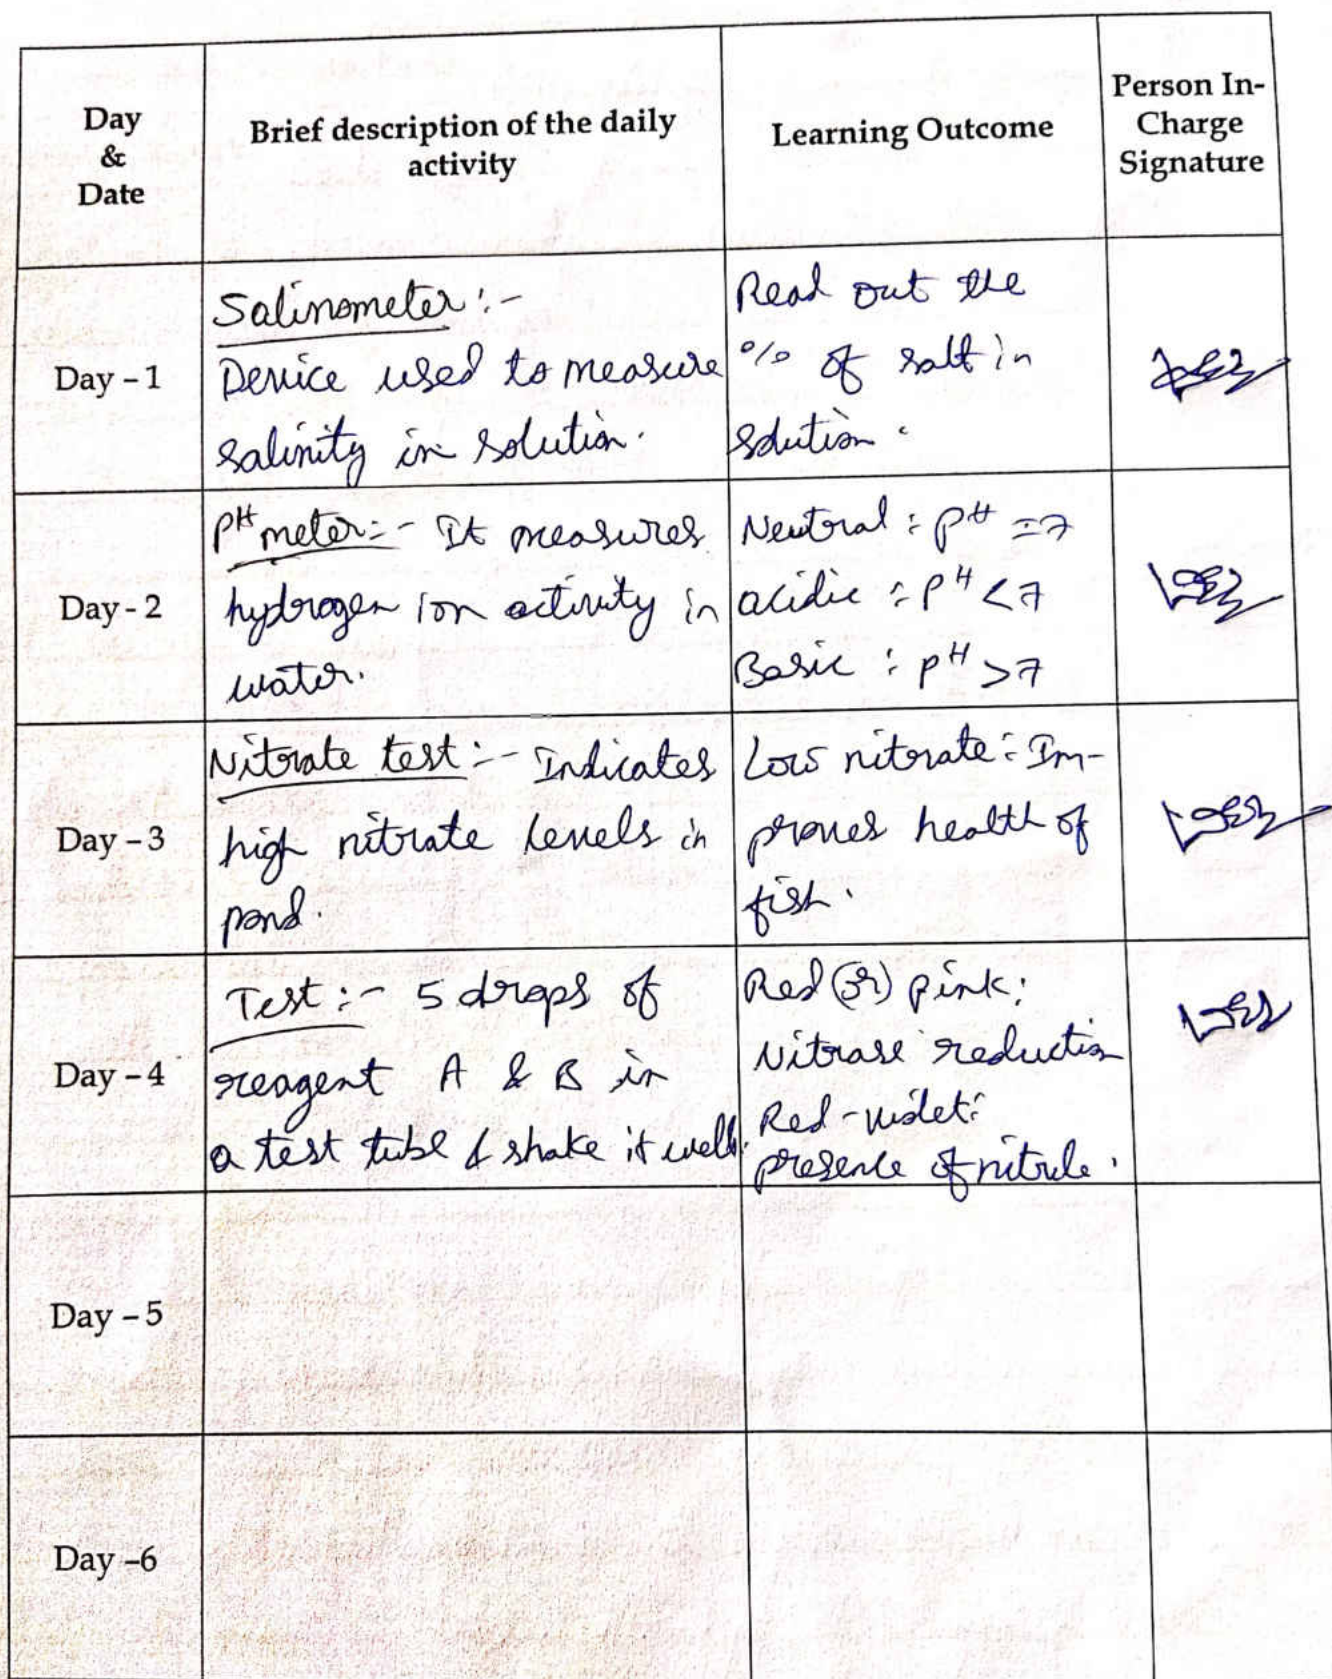 Day
&
Date
Brief description of the daily
activity
Learning Outcome
Person In-
Charge
Signature
Day - 1
Salinometer :-
Device used to measure
salinity in solution.
Read out the
% of salt in
solution.
Day - 2
pH meter:- It measures
hydrogen ion activity in
water.
Neutral : pH = 7
acidic : pH < 7
Basic : pH > 7
Day - 3
Nitrate test :- Indicates
high nitrate levels in
pond.
Low nitorate : Im-
proves health of
fish.
Day - 4
Test :- 5 drops of
reagent A & B in
a test tube & shake it well.
Red (or) pink :
Nitrase reduction
Red-violet :
presence of
Day - 5
Day -6